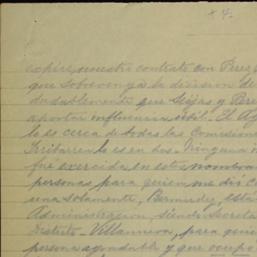 + 4.
expire nuestro contrato con Perez
que sobrevenga la decision de
dudablemente que Seijas y Pere
aportar influencia útil. El Ag
lo es cerca de todas las Comisione
Iribarren lo es en dos. Ninguna in
fué ejercida en estos nombra
personas para quien me dió C
una solamente, Bermudez, esta
Administracion, siendo Secreta
Distrito. Villanueva, para quien
persona agradable y que ocupo